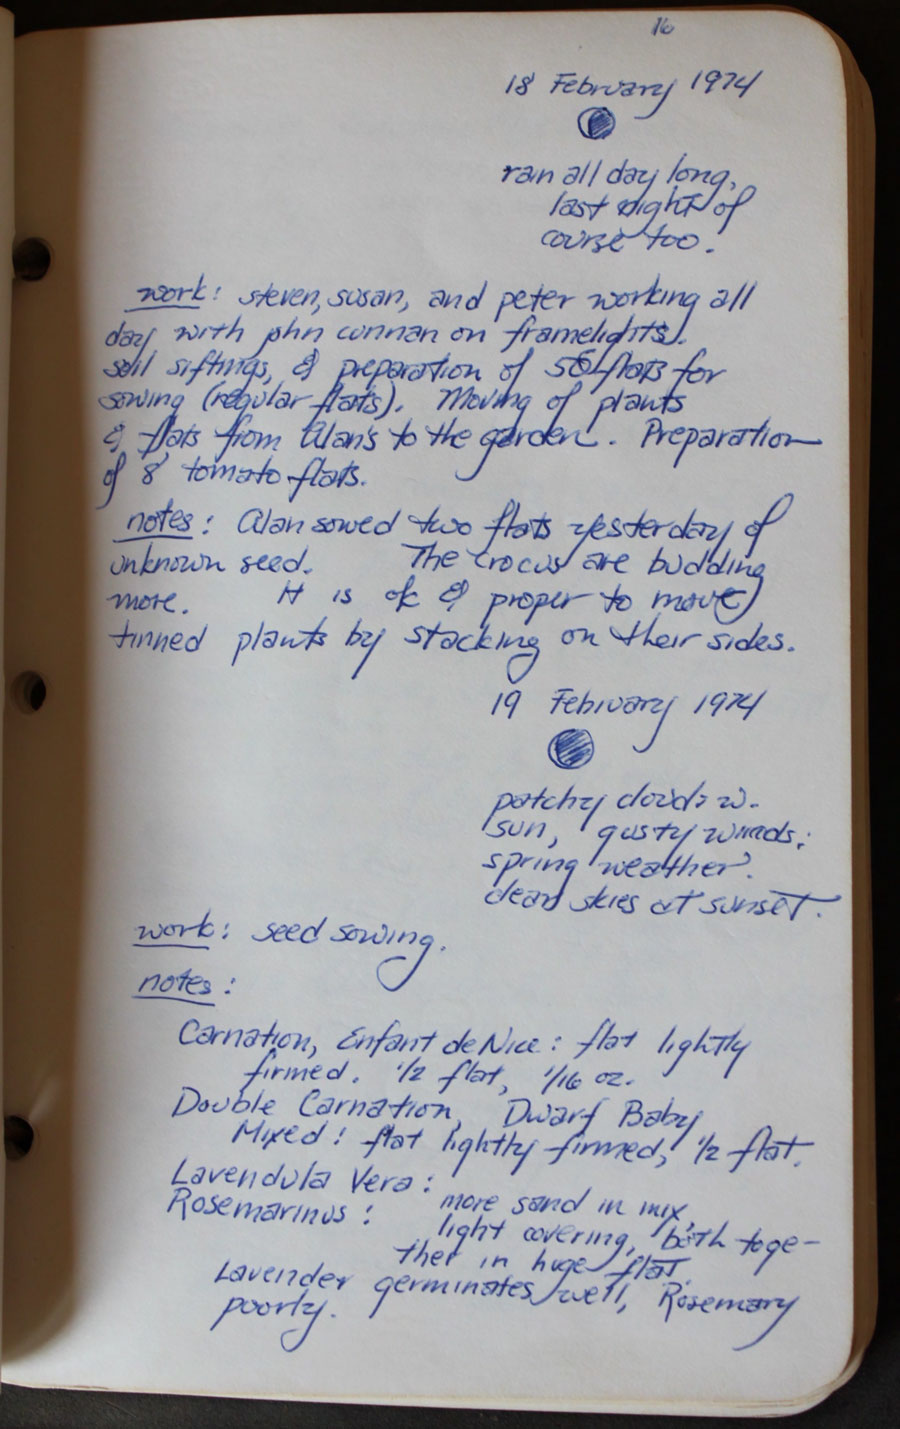 16
18 February 1974
rain all day long,
last night of
course too.
work: steven, susan, and peter working all
day with john connan on framelights.
soil siftings, & preparation of 56 flats for
sowing (regular flats). Moving of plants
& flats from Alan's to the garden. Preparation
of 8 tomato flats.
notes: Alan sowed two flats yesterday of
unknown seed. The crocus are budding
more. It is ok & proper to move
tinned plants by stacking on their sides.
19 February 1974
patchy clouds w.
sun, gusty winds;
spring weather.
clear skies at sunset.
work: seed sowing.
notes:
Carnation, Enfant de Nice: flat lightly
firmed. 1/2 flat, 1/16 oz.
Double Carnation, Dwarf Baby
Mixed: flat lightly firmed, 1/2 flat.
Lavendula Vera:
Rosemarinus: more sand in mix,
light covering, both toge-
ther in huge flat.
Lavender germinates well, Rosemary
poorly.